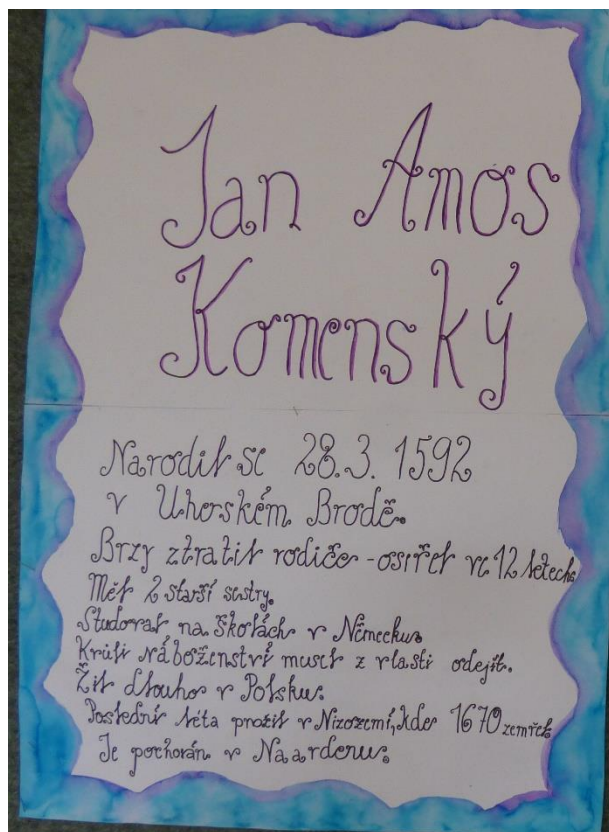 Jan Amos
Komenský
Narodil se 28.3. 1592
v Uherském Brodě.
Brzy ztratil rodiče - osiřel ve 12 letech.
Měl 2 starší sestry.
Studoval na školách v Německu.
Kvůli náboženství musel z vlasti odejít.
Žil dlouho v Polsku.
Poslední léta prožil v Nizozemí, kde 1670 zemřel.
Je pochován v Naardenu.